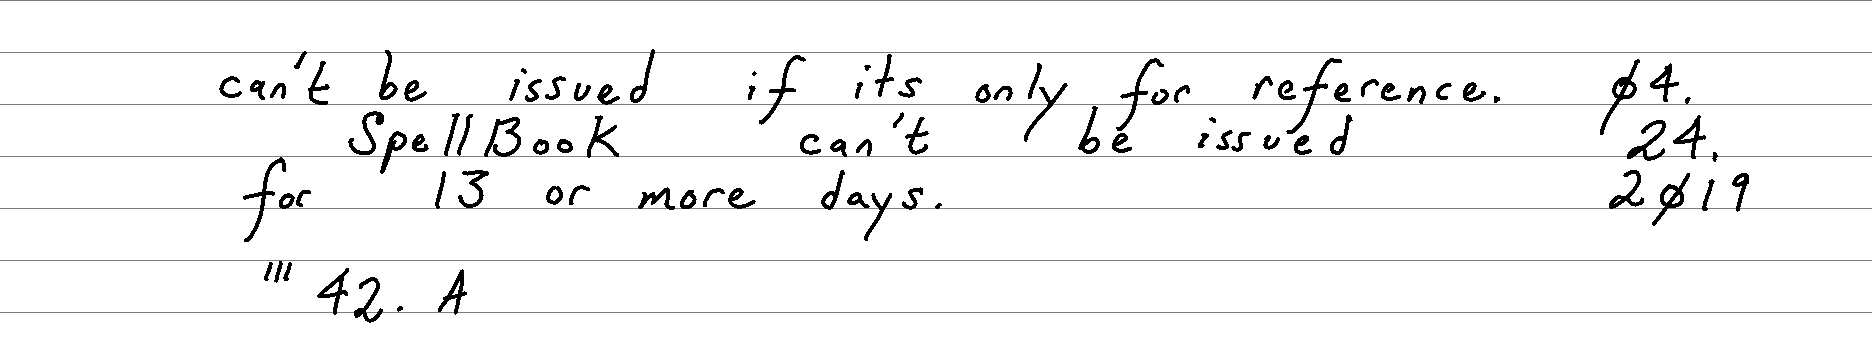 can't be issued if its only for reference. 04.
SpellBook can't be issued 24.
for 13 or more days. 2019
''' 42. A